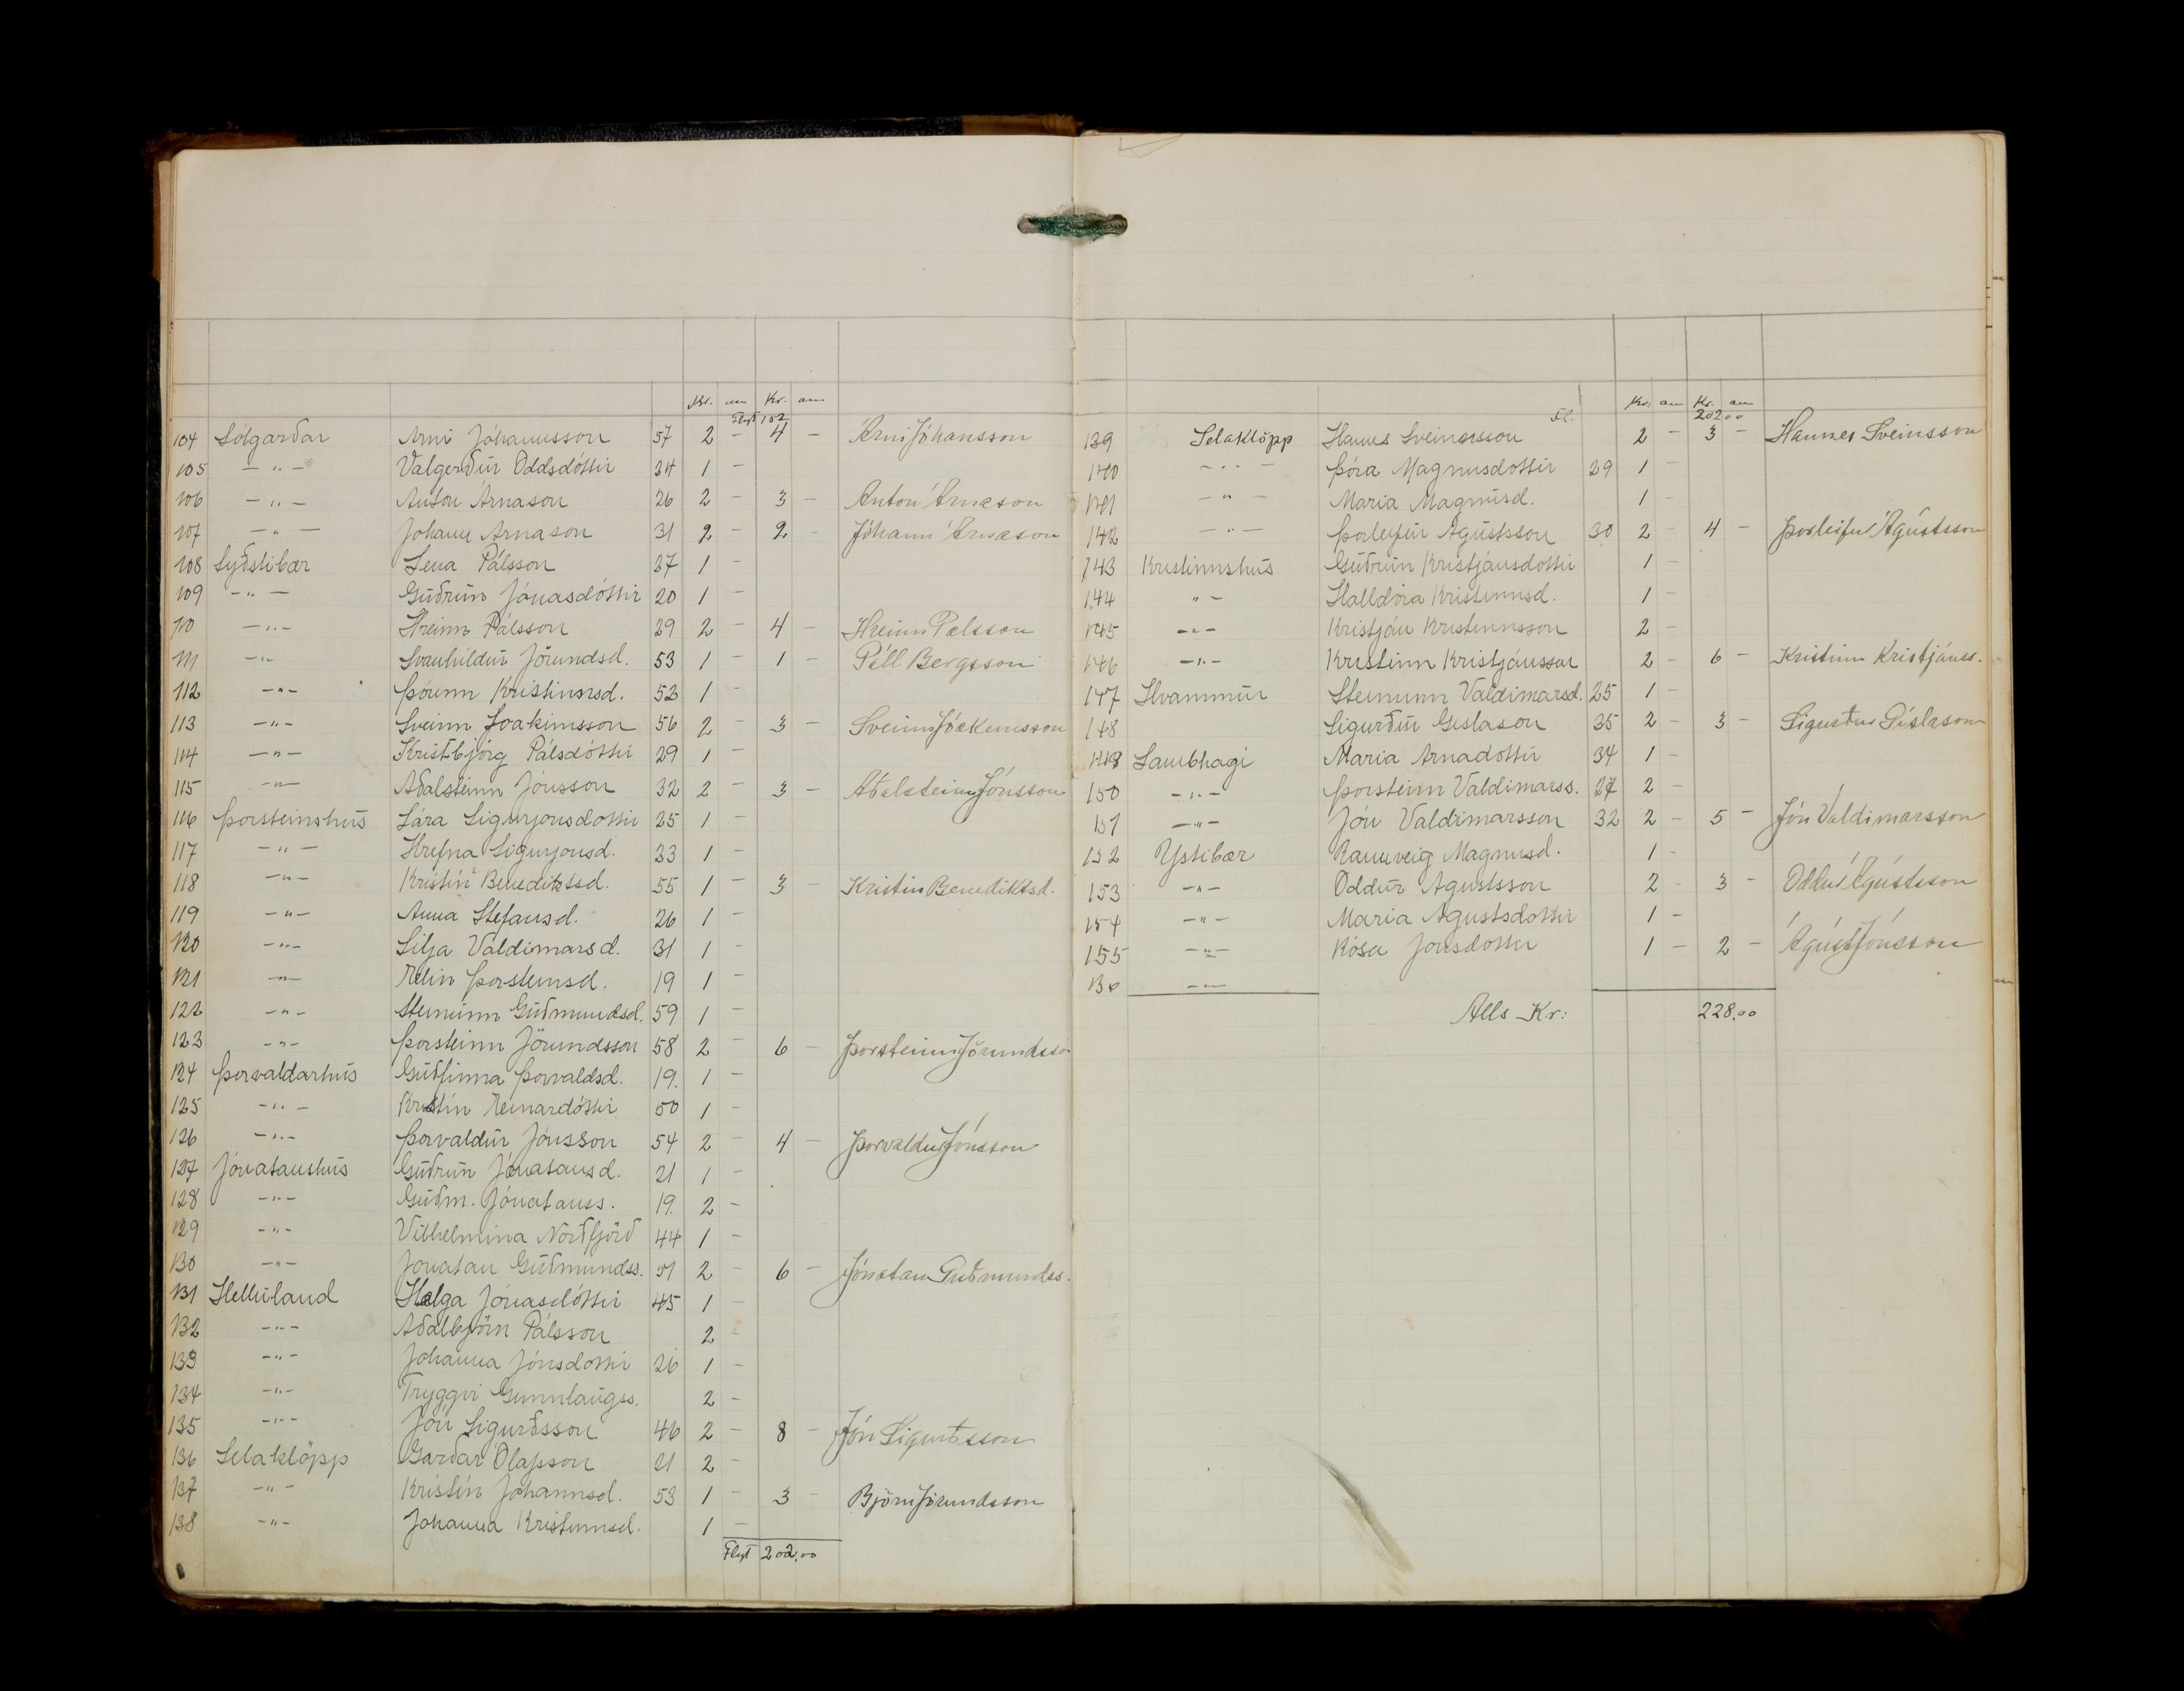 Kr. au Kr. au
Flyt 152
104 Sólgarðar Arni Jóhannsson 57 2 - 4 - Árni Jóhansson
105 -"- Valgerður Oddsdóttir 34 1 -
106 -"- Anton Árnason 26 2 - 3 - Anton Árnason
107 -"- Jóhann Arnason 31 2 - 2 - Jóhann Árnason
108 Syðstibær Lena Pálsson 37 1 -
109 -"- Guðrún Jónasdóttir 20 1 -
110 -"- Hreinn Pálsson 29 2 - 4 - Hreinn Pálsson
111 -"- Svanhildur Jörundsd. 53 1 - 1 - Páll Bergsson
112 -"- Þórunn Kristinsd. 52 1 -
113 -"- Sveinn Joakimsson 56 2 - 3 - Sveinn Jóakimsson
114 -"- Kristbjörg Pálsdóttir 29 1
115 -"- Aðalsteinn Jónsson 32 2 - 3 - Aðalsteinn Jónsson
116 Þorsteinshús Lára Sigurjonsdottir 25 1 -
117 -"- Hrefna Sigurjonsd. 23 1 -
118 -"- Kristín Benediktsd. 55 1 - 3 - Kristin Benediktsd.
119 -"- Anna Stefansd. 26 1 -
120 -"- Lilja Valdimarsd. 31 1 -
121 -"- Elin Þorsteinsd. 19 1 -
122 -"- Steinunn Guðmundsd. 59 1 -
123 -"- Þorsteinn Jörundsson 58 2 - 6 - Þorsteinn Jörundsso
124 Þorvaldarhús Guðfinna Þorvaldsd. 19. 1 -
125 -"- Kristín Reinardóttir 50 1 -
126 -"- Þorvaldur Jónsson 54 2 - 4 - Þorvaldur Jónsson
127 Jónatanshús Guðrun Jónatansd. 21 1 -
128 -"- Guðm. Jónatanss. 19. 2 -
129 -"- Vilhelmina Norðfjörð 44 1 -
130 -"- Jonatan Guðmundss. 51 2 - 6 - Jónatan Guðmundss.
131 Helluland Helga Jónasdóttir 45 1 -
132 -"- Aðalbjörn Pálsson 2 -
133 -"- Johanna Jónsdottir 26 1 -
134 -"- Tryggvi Gunnlaugss. 2 -
135 -"- Jón Sigurðsson 46 2 - 8 - Jón Sigurðsson
136 Selaklöpp Garðar Ólafsson 21 2 -
137 -"- Kristín Jóhannsd. 53 1 - 3 - Björn Jörundsson
138 -"- Johanna Kristinnsd. 1 -
Flyt 202.00
Kr. au Kr. au
Fl. 202 00
139 Selaklöpp Hannes Sveinsson 2 - 3 - Hannes Sveinsson
140 -"- Þóra Magnusdottir 29 1 -
141 -"- Maria Magnúsd. 1 -
142 -"- Þorleifur Agústsson 30 2 - 4 - Þorleifur Ágústsson
143 Kristinnshús Guðrún Kristjánsdottir 1 -
144 "- Halldóra Kristinnsd. 1 -
145 -"- Kristján Kristinnsson 2 -
146 -"- Kristinn Kristjánsson 2 - 6 - Kristinn Kristjánss.
147 Hvammur Steinunn Valdimarsd. 25 1 -
148 Sigurður Gíslason 35 2 - 3 - Sigurður Gíslason
149 Lambhagi Maria Arnadottir 34 1 -
150 -"- Þorsteinn Valdimarss. 27 2 -
151 -"- Jón Valdimarsson 32 2 - 5 - Jón Valdimarsson
152 Ystibær Rannveig Magnusd. 1 -
153 -"- Oddur Agustsson 2 - 3 - Oddur Ágústsson
154 -"- Maria Agustsdottir 1 -
155 -"- Rósa Jonsdottir 1 - 2 - Ágúst Jónsson
-"-
Alls Kr: 228.00